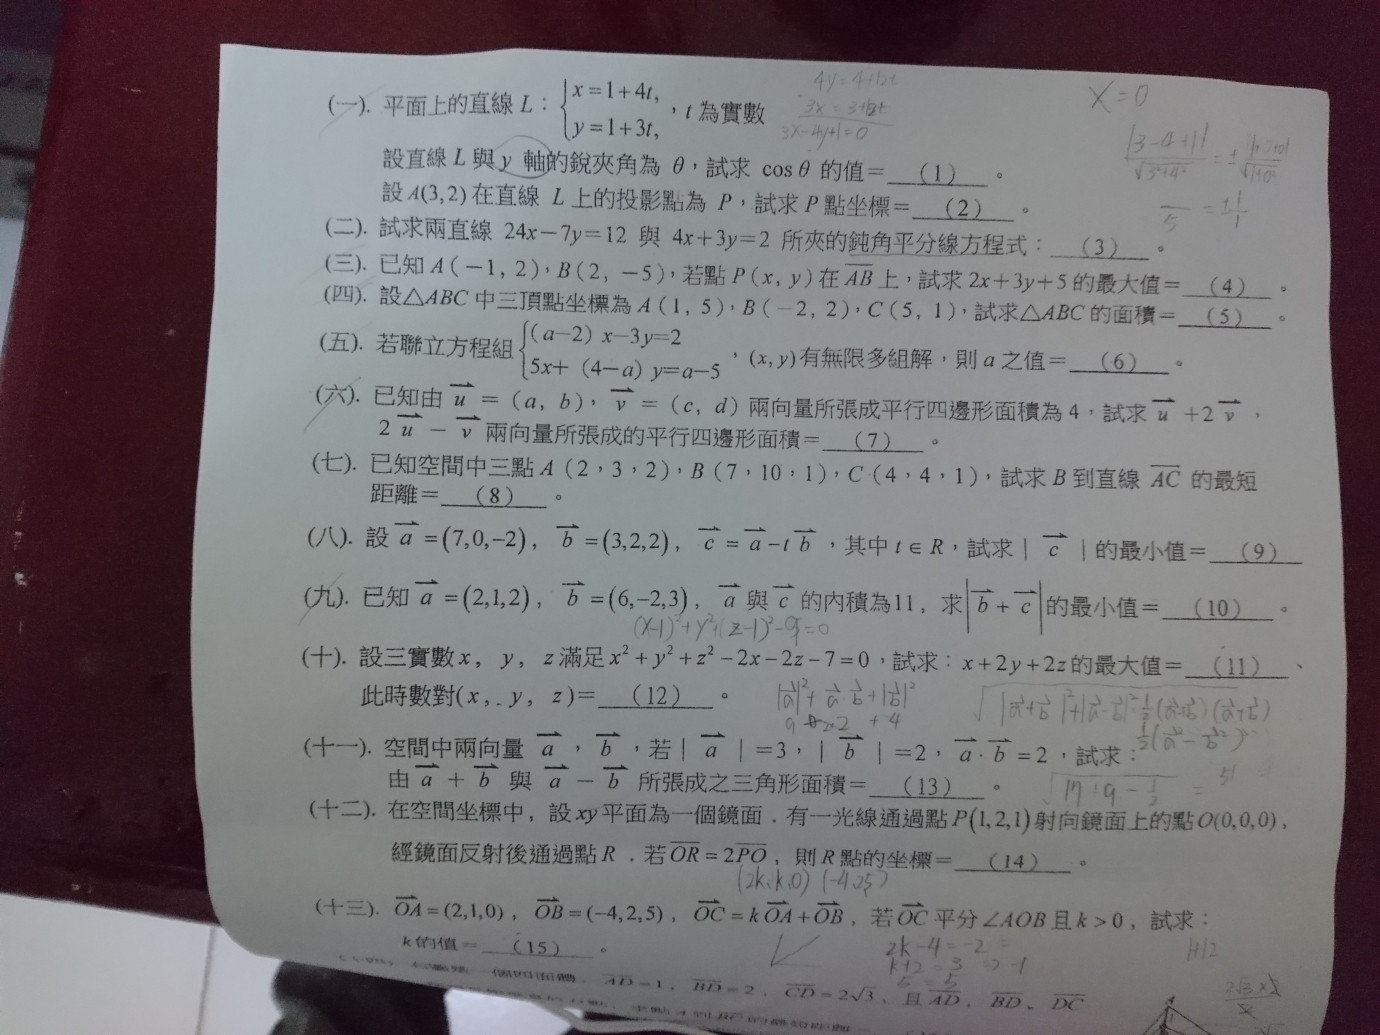 (一). 平面上的直線 L： { x=1+4t, y=1+3t, ，t 為實數
4y=4+12t
3x=3+12t
3x-4y+1=0
x=0
設直線 L 與 y 軸的銳夾角為 θ，試求 cosθ 的值=（1）。
設 A(3,2) 在直線 L 上的投影點為 P，試求 P 點坐標=（2）。
(二). 試求兩直線 24x－7y=12 與 4x+3y=2 所夾的鈍角平分線方程式：（3）。
(三). 已知 A（－1, 2），B（2, －5），若點 P（x, y）在 AB 上，試求 2x＋3y＋5 的最大值=（4）。
(四). 設△ABC 中三頂點坐標為 A（1, 5），B（－2, 2），C（5, 1），試求△ABC 的面積=（5）。
(五). 若聯立方程組 { (a－2) x－3y=2 5x+ (4－a) y=a－5 ，(x, y)有無限多組解，則 a 之值=（6）。
(六). 已知由 u =（a, b），v =（c, d）兩向量所張成平行四邊形面積為 4，試求 u +2 v ，
2 u － v 兩向量所張成的平行四邊形面積=（7）。
(七). 已知空間中三點 A（2，3，2），B（7，10，1），C（4，4，1），試求 B 到直線 AC 的最短
距離=（8）。
(八). 設 a =(7,0,-2)， b =(3,2,2)， c = a -t b ，其中 t ∈ R，試求 | c | 的最小值=（9）
(九). 已知 a =(2,1,2)， b =(6,-2,3)， a 與 c 的內積為11，求| b + c |的最小值=（10）。
(x-1)²+y²+(z-1)²-9=0
(十). 設三實數 x， y， z 滿足 x²+y²+z²-2x-2z-7=0，試求：x+2y+2z 的最大值=（11）、
此時數對(x, y, z)=（12）。
(十一). 空間中兩向量 a ， b ，若 | a | =3， | b | =2， a · b =2，試求：
由 a + b 與 a － b 所張成之三角形面積=（13）。
(十二). 在空間坐標中，設 xy 平面為一個鏡面．有一光線通過點 P(1,2,1) 射向鏡面上的點 O(0,0,0)，
經鏡面反射後通過點 R．若 OR=2PO，則 R 點的坐標=（14）。
(2k,k,0) (-4,2,5)
(十三). OA=(2,1,0)， OB=(-4,2,5)， OC=k OA+OB，若 OC 平分∠AOB 且 k>0，試求：
k 的值=（15）。
2k-4=-2
k+2=3
5=5
AD=1， BD=2， CD=2√3，且 AD， BD， DC